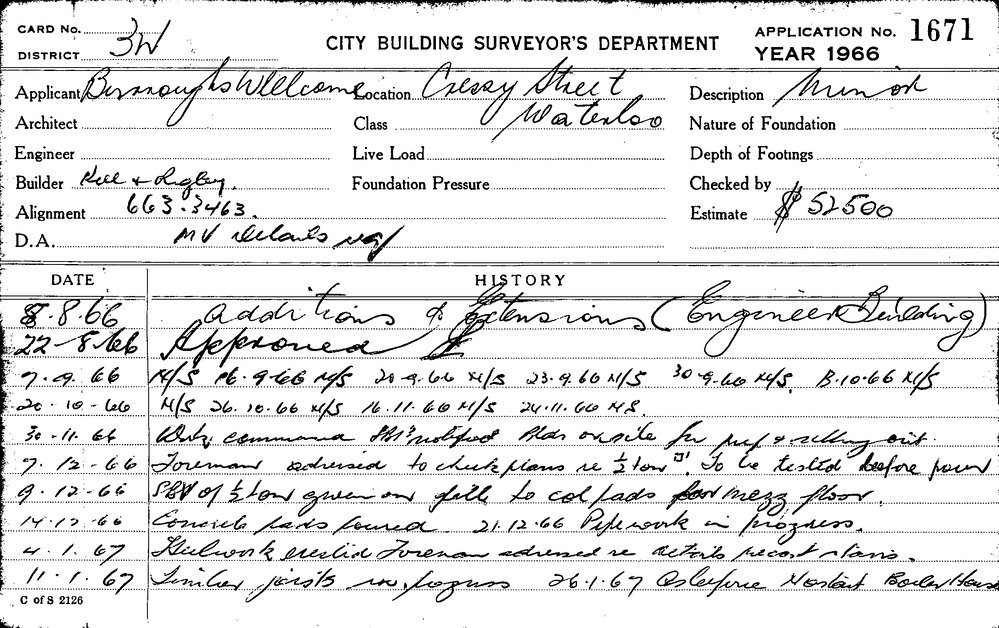 CARD No.
DISTRICT 3W
CITY BUILDING SURVEYOR'S DEPARTMENT
APPLICATION No. 1671
YEAR 1966
Applicant Burroughs Wellcome Location Cressy Street Description Minor
Architect Class Waterloo Nature of Foundation
Engineer Live Load Depth of Footings
Builder Kell & Rigby. Foundation Pressure Checked by
Alignment 663.3463. Estimate $ 52500
D.A. MV Details
DATE HISTORY
8.8.66 Additions & Extensions (Engineer Building)
22-8-66 Approved
7.9.66 N/S 16.9.66 N/S 20.9.66 N/S 23.9.66 N/S 30.9.66 N/S, 18.10.66 N/S
20.10.66 N/S 26.10.66 N/S 16.11.66 N/S 24.11.66 N.S.
30.11.66 Work commenced notified Bldr on site for & setting out.
7.12.66 Foreman advised to check plans re ½ ton To be tested before pour
9.12.66 SBV of ½ ton given on fill to col pads for mezz floor.
14.12.66 Concrete pads poured 21.12.66 Pipework in progress.
4.1.67 Steelwork erected Foreman advised re details precast stairs.
11.1.67 Timber joists in progress 26.1.67 Boiler House
C of S 2126